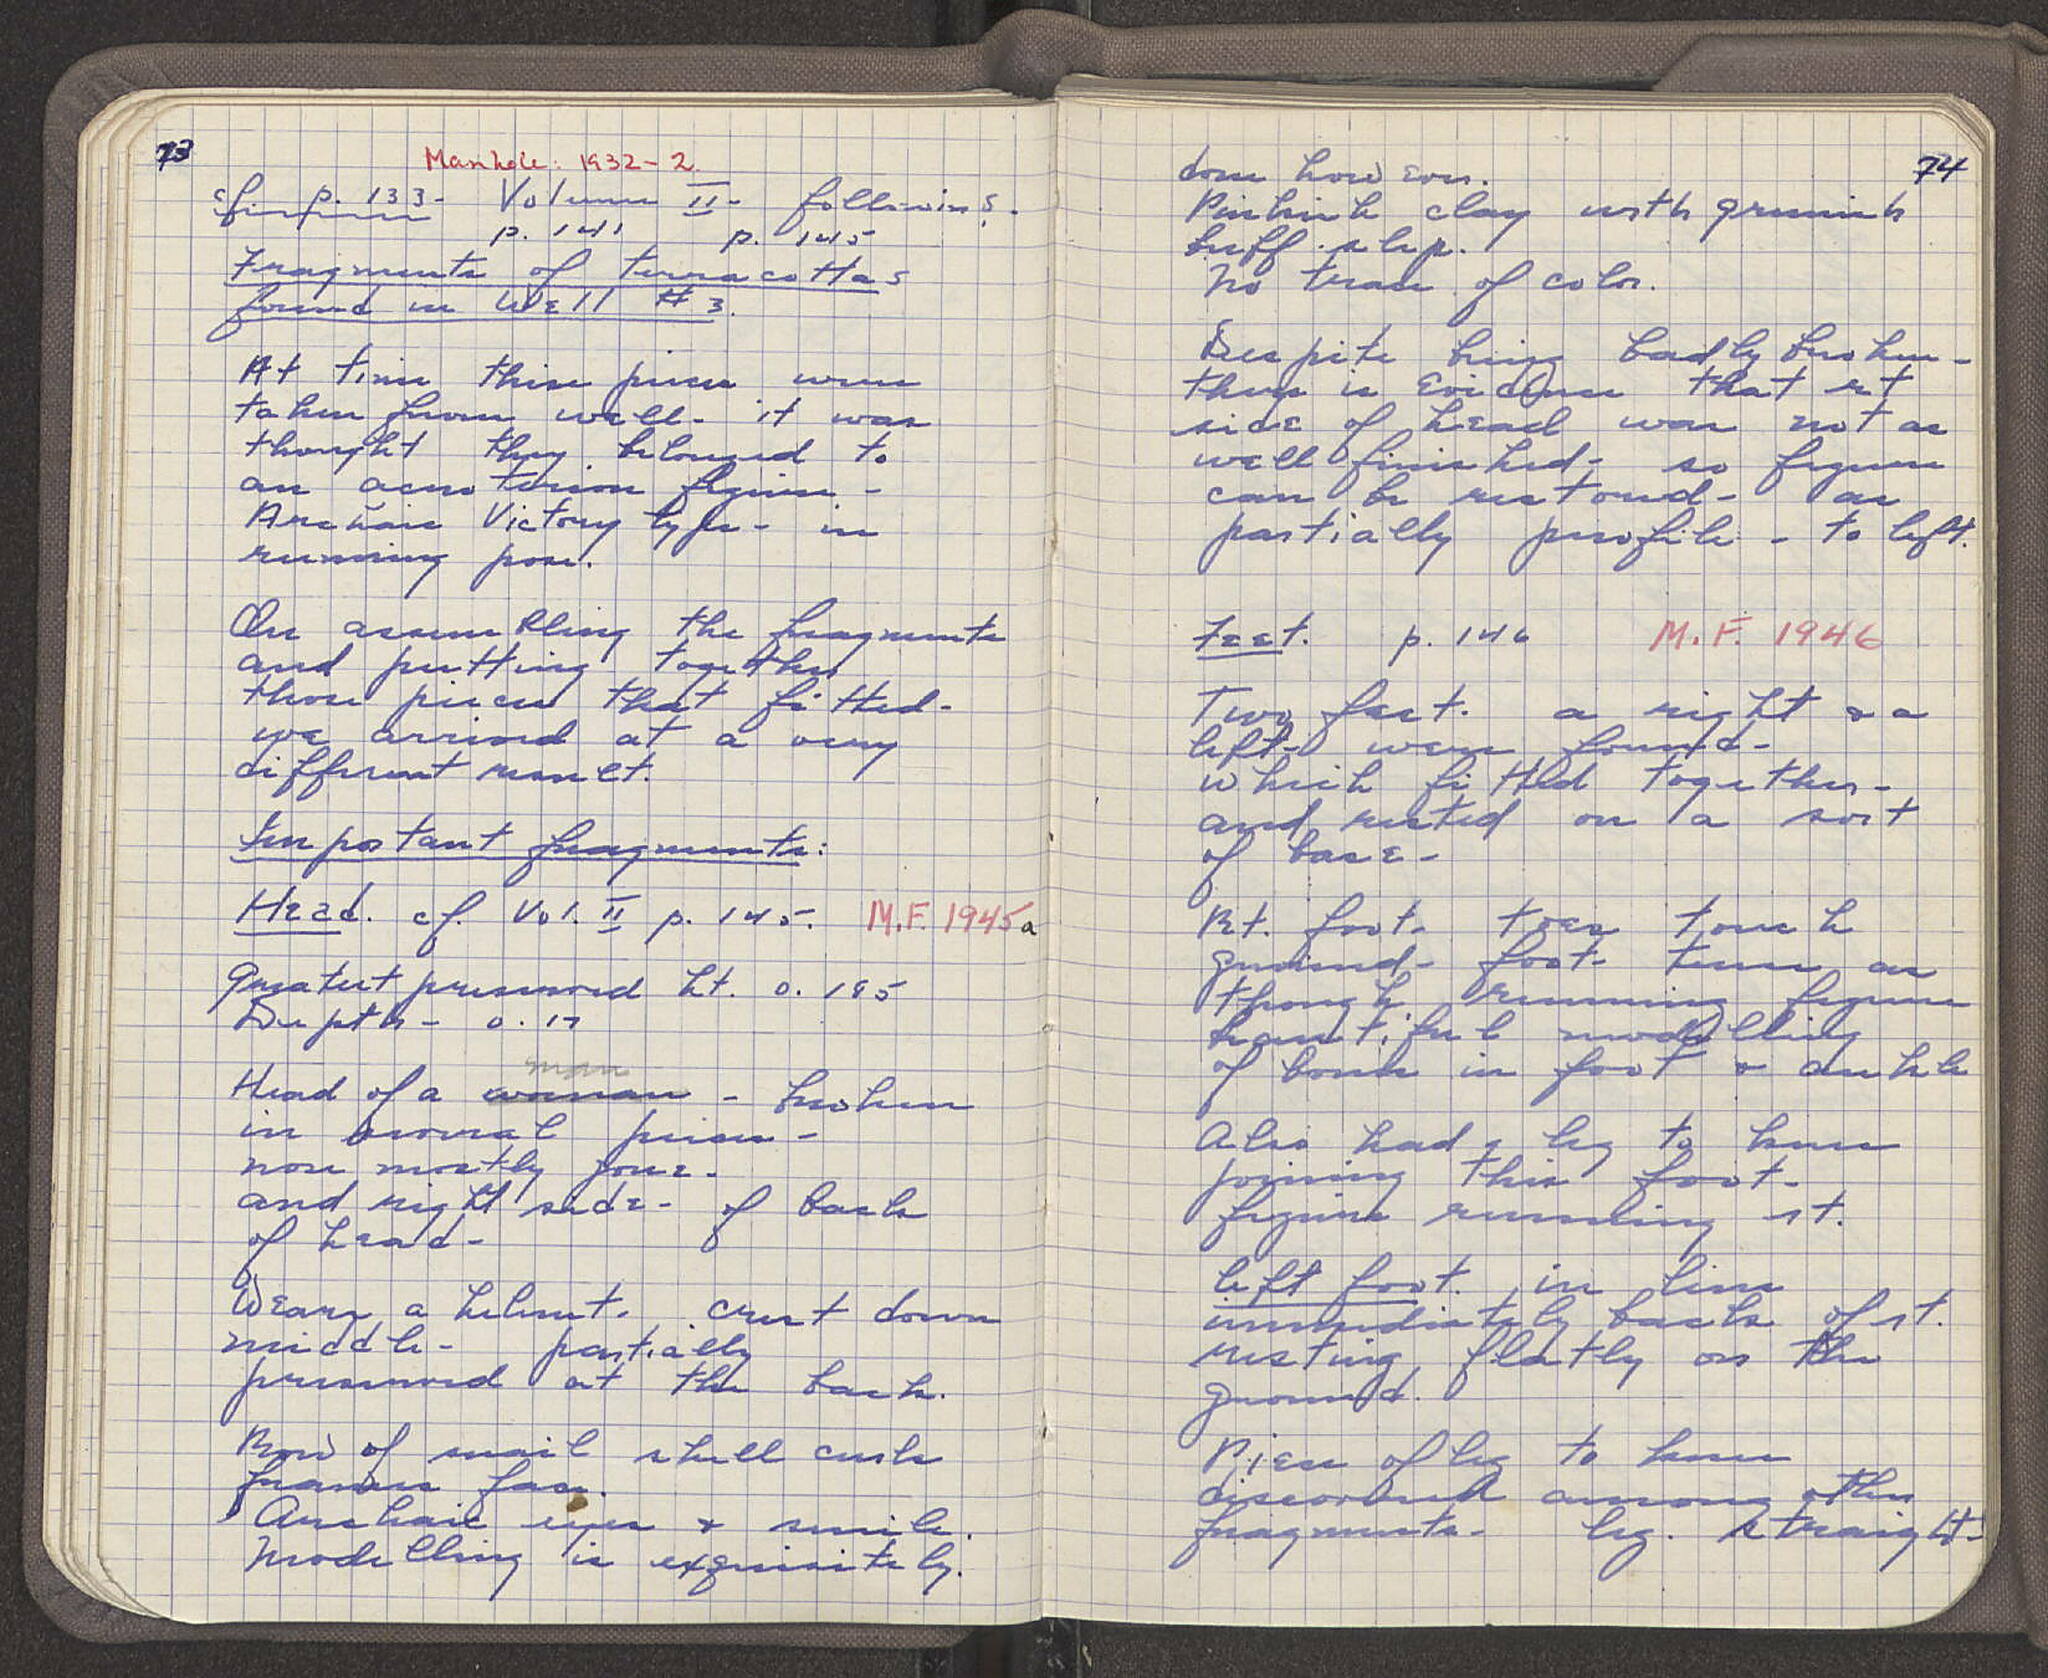 73
Manhole: 1932-2.
cf. p. 133- Volume II- following.
p. 141 p. 145
Fragments of terracottas
found in Well #3.
At time these pieces were
taken from well- it was
thought they belonged to
an acroterion figure -
Archaic Victory type - in
running pose.
On assembling the fragments
and putting together
those pieces that fitted-
we arrived at a very
different result.
Important fragments:
Head. cf. Vol. II p. 145. M.F. 1945a
Greatest preserved ht. 0.185
Depth- 0.17
man
Head of a woman - broken
in several pieces -
nose mostly gone.
and right side - of back
of head -
Wears a helmet. crest down
middle - partially
preserved at the back.
Row of snail shell curls
frames face.
Archaic eyes + smile.
Modelling is exquisitely.
74
done however.
Pinkish clay with greenish
buff slip.
No trace of color.
Despite being badly broken -
there is evidence that rt
side of head was not as
well finished - so figure
can be restored - as
partially profile - to left.
Feet. p. 146 M.F. 1946
Two feet. a right & a
left - were found -
which fitted together -
and rested on a sort
of base -
Rt. foot - toes touch
ground - foot - tense as
though running figure
beautiful modelling
of bones in foot & ankle
Also had leg to knee
joining this foot -
figure running rt.
left foot. in line
immediately back of rt.
resting flatly on the
ground.
Piece of leg to knee
discovered among other
fragments - leg. straight -